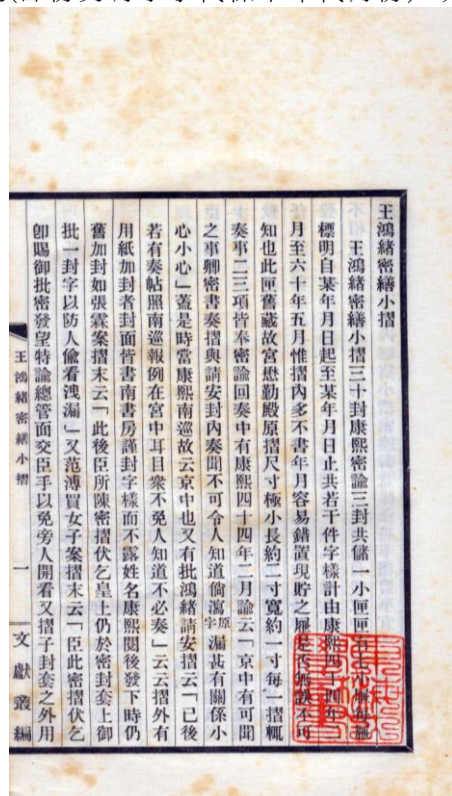 王鴻緒密繕小摺
王鴻緒密繕小摺三十封康熙密諭三封共儲一小匣匣有七小屜每屜
標明自某年月日起至某年月日止共若干件字樣計由康熙四十四年
月至六十年五月惟摺內多不書年月容易錯置現貯之屜是否無誤不可
知也此匣舊藏故宮懋勤殿原摺尺寸極小長約二寸寬約一寸每一摺輒
奏事二三項皆奉密諭回奏中有康熙四十四年二月諭云「京中有可聞
之事卿密書奏摺與請安封內奏聞不可令人知道倘瀉原字漏甚有關係小
心小心」蓋是時當康熙南巡故云京中也又有批鴻緒請安摺云「已後
若有奏帖照南巡報例在宮中耳目衆不免人知道不必奏」云云摺外有
用紙加封者封面皆書南書房謹封字樣而不露姓名康熙閱後發下時仍
舊加封如張霖案摺末云「此後臣所陳密摺伏乞皇上仍於密封套上御
批一封字以防人偷看洩漏」又范溥買女子案摺末云「臣此密摺伏乞
卽賜御批密發望特諭總管面交臣手以免旁人開看又摺子封套之外用
王鴻緒密繕小摺
一
文獻叢編